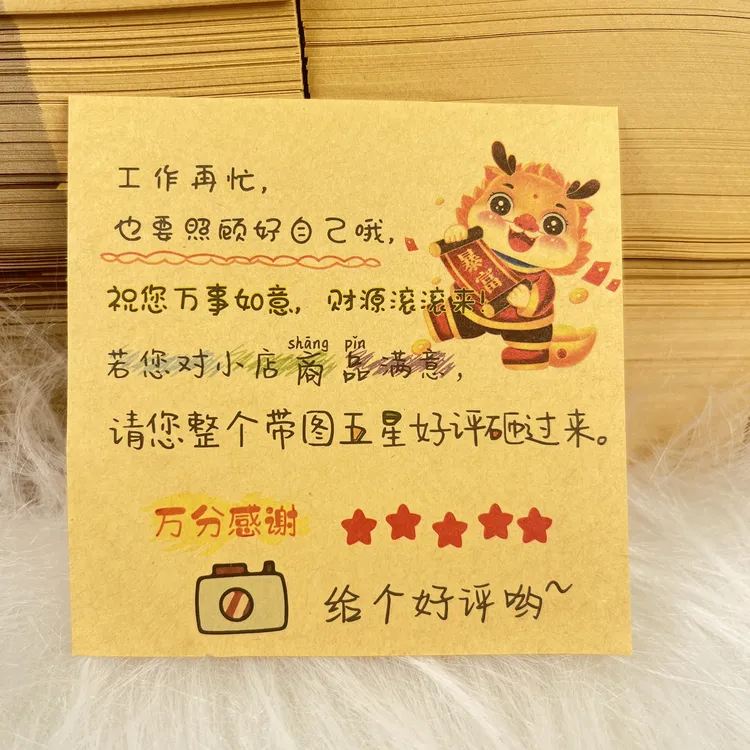 工作再忙,
也要照顾好自己哦,
祝您万事如意, 财源滚滚来!
暴富
shāng pǐn
若您对小店商品满意,
请您整个带图五星好评砸过来。
万分感谢
给个好评哟~